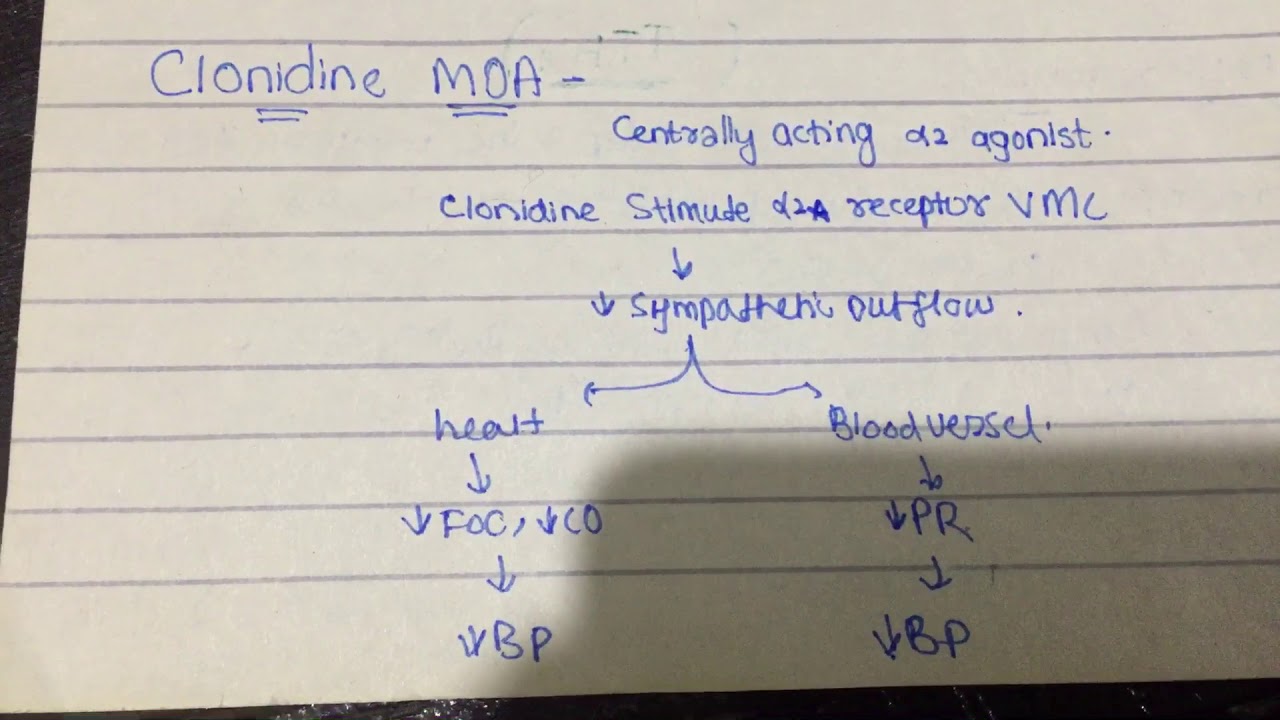 Clonidine MOA -
Centrally acting α2 agonist.
Clonidine Stimude α2A receptor VMC
↓
↓ Sympathetic outflow.
heart Blood vessel.
↓ ↓
↓FOC, ↓CO ↓PR
↓ ↓
↓BP ↓BP